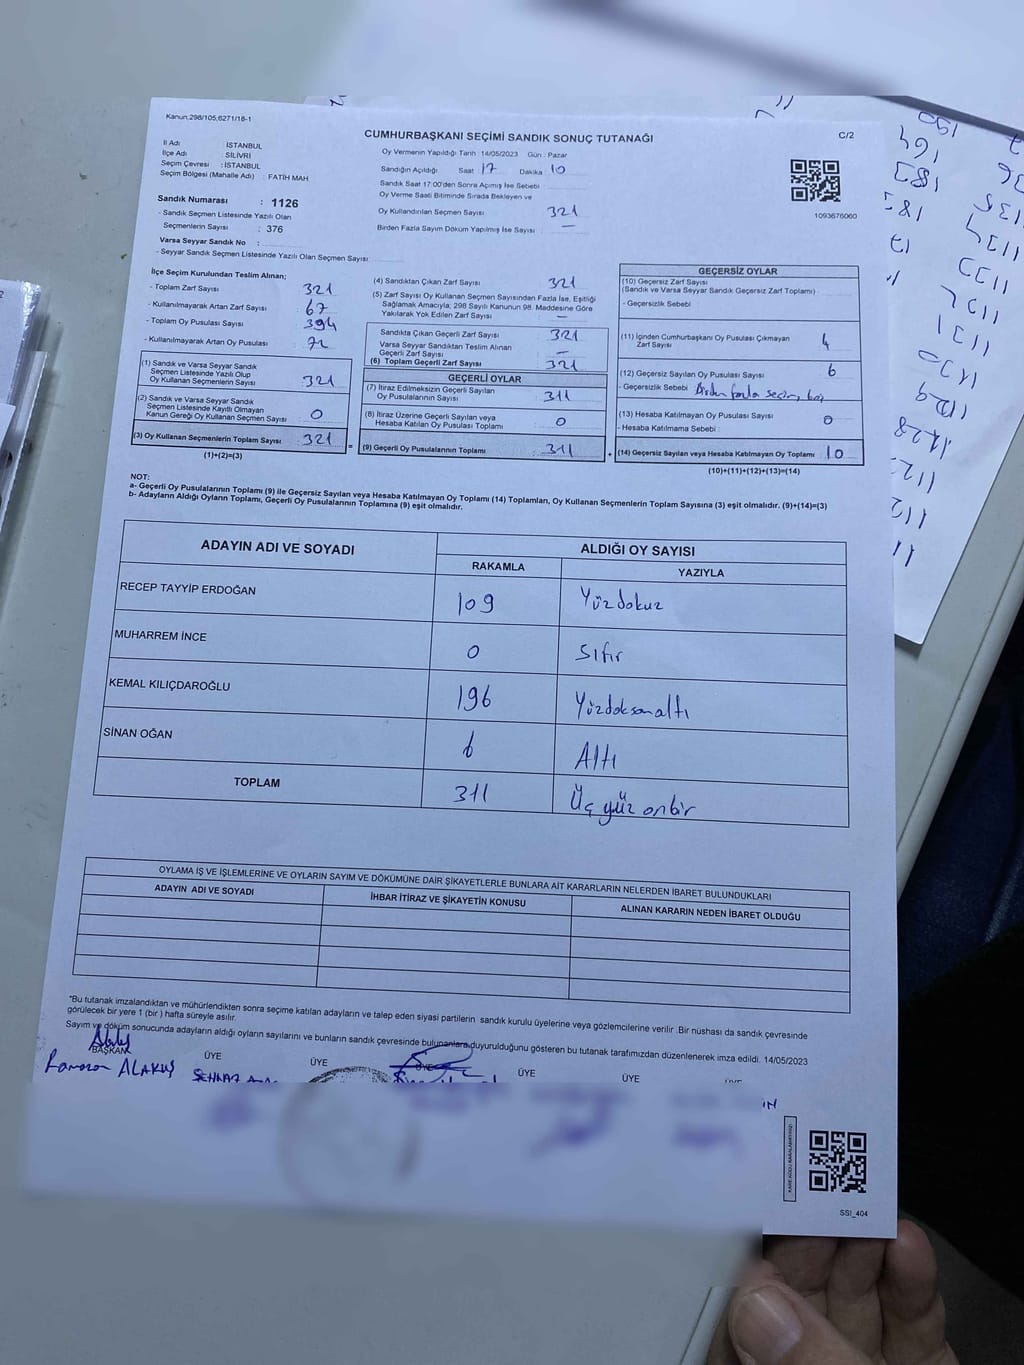 Kanun,298/105,6271/18-1
CUMHURBAŞKANI SEÇİMİ SANDIK SONUÇ TUTANAĞI
C/2
İl Adı : İSTANBUL
İlçe Adı : SİLİVRİ
Seçim Çevresi : İSTANBUL
Seçim Bölgesi (Mahalle Adı) : FATİH MAH
Oy Vermenin Yapıldığı Tarih :14/05/2023 Gün : Pazar
Sandığın Açıldığı Saat : 17 Dakika : 10
Sandık Saat 17:00'den Sonra Açımış İse Sebebi
Oy Verme Saati Bitiminde Sırada Bekleyen ve
Oy Kullandırılan Seçmen Sayısı 321
Birden Fazla Sayım Döküm Yapılmış İse Sayısı : —
1093676060
Sandık Numarası : 1126
- Sandık Seçmen Listesinde Yazılı Olan
Seçmenlerin Sayısı : 376
Varsa Seyyar Sandık No :
- Seyyar Sandık Seçmen Listesinde Yazılı Olan Seçmen Sayısı :
İlçe Seçim Kurulundan Teslim Alınan;
- Toplam Zarf Sayısı : 321
- Kullanılmayarak Artan Zarf Sayısı : 67
- Toplam Oy Pusulası Sayısı : 394
- Kullanılmayarak Artan Oy Pusulası : 72
(1) Sandık ve Varsa Seyyar Sandık
Seçmen Listesinde Yazılı Olup
Oy Kullanan Seçmenlerin Sayısı : 321
(2) Sandık ve Varsa Seyyar Sandık
Seçmen Listesinde Kayıtlı Olmayan
Kanun Gereği Oy Kullanan Seçmen Sayısı : 0
(3) Oy Kullanan Seçmenlerin Toplam Sayısı : 321
(1)+(2)=(3)
(4) Sandıktan Çıkan Zarf Sayısı : 321
(5) Zarf Sayısı Oy Kullanan Seçmen Sayısından Fazla İse, Eşitliği
Sağlamak Amacıyla, 298 Sayılı Kanunun 98. Maddesine Göre
Yakılarak Yok Edilen Zarf Sayısı : —
Sandıkta Çıkan Geçerli Zarf Sayısı : 321
Varsa Seyyar Sandıktan Teslim Alınan
Geçerli Zarf Sayısı : —
(6) Toplam Geçerli Zarf Sayısı : 321
GEÇERLİ OYLAR
(7) İtiraz Edilmeksizin Geçerli Sayılan
Oy Pusulalarının Sayısı : 311
(8) İtiraz Üzerine Geçerli Sayılan veya
Hesaba Katılan Oy Pusulası Toplamı : 0
(9) Geçerli Oy Pusulalarının Toplamı : 311
GEÇERSİZ OYLAR
(10) Geçersiz Zarf Sayısı
(Sandık ve Varsa Seyyar Sandık Geçersiz Zarf Toplamı) :
- Geçersizlik Sebebi :
(11) İçinden Cumhurbaşkanı Oy Pusulası Çıkmayan
Zarf Sayısı : 4
(12) Geçersiz Sayılan Oy Pusulası Sayısı : 6
- Geçersizlik Sebebi : Birden fazla seçim
(13) Hesaba Katılmayan Oy Pusulası Sayısı : 0
- Hesaba Katılmama Sebebi :
(14) Geçersiz Sayılan veya Hesaba Katılmayan Oy Toplamı : 10
(10)+(11)+(12)+(13)=(14)
NOT:
a- Geçerli Oy Pusulalarının Toplamı (9) ile Geçersiz Sayılan veya Hesaba Katılmayan Oy Toplamı (14) Toplamları, Oy Kullanan Seçmenlerin Toplam Sayısına (3) eşit olmalıdır. (9)+(14)=(3)
b- Adayların Aldığı Oyların Toplamı, Geçerli Oy Pusulalarının Toplamına (9) eşit olmalıdır.
ADAYIN ADI VE SOYADI ALDIĞI OY SAYISI
RAKAMLA YAZIYLA
RECEP TAYYİP ERDOĞAN 109 Yüzdokuz
MUHARREM İNCE 0 Sıfır
KEMAL KILIÇDAROĞLU 196 Yüzdoksanaltı
SİNAN OĞAN 6 Altı
TOPLAM 311 Üç yüz onbir
OYLAMA İŞ VE İŞLEMLERİNE VE OYLARIN SAYIM VE DÖKÜMÜNE DAİR ŞİKAYETLERLE BUNLARA AİT KARARLARIN NELERDEN İBARET BULUNDUKLARI
ADAYIN ADI VE SOYADI İHBAR İTİRAZ VE ŞİKAYETİN KONUSU ALINAN KARARIN NEDEN İBARET OLDUĞU
*Bu tutanak imzalandıktan ve mühürlendikten sonra seçime katılan adayların ve talep eden siyasi partilerin sandık kurulu üyelerine veya gözlemcilerine verilir .Bir nüshası da sandık çevresinde
görülecek bir yere 1 (bir ) hafta süreyle asılır.
Sayım ve döküm sonucunda adayların aldığı oyların sayılarını ve bunların sandık çevresinde bulunanlara duyurulduğunu gösteren bu tutanak tarafımızdan düzenlenerek imza edildi. 14/05/2023
BAŞKAN ÜYE ÜYE ÜYE ÜYE ÜYE ÜYE
Ramazan ALAKUŞ
SSI_404